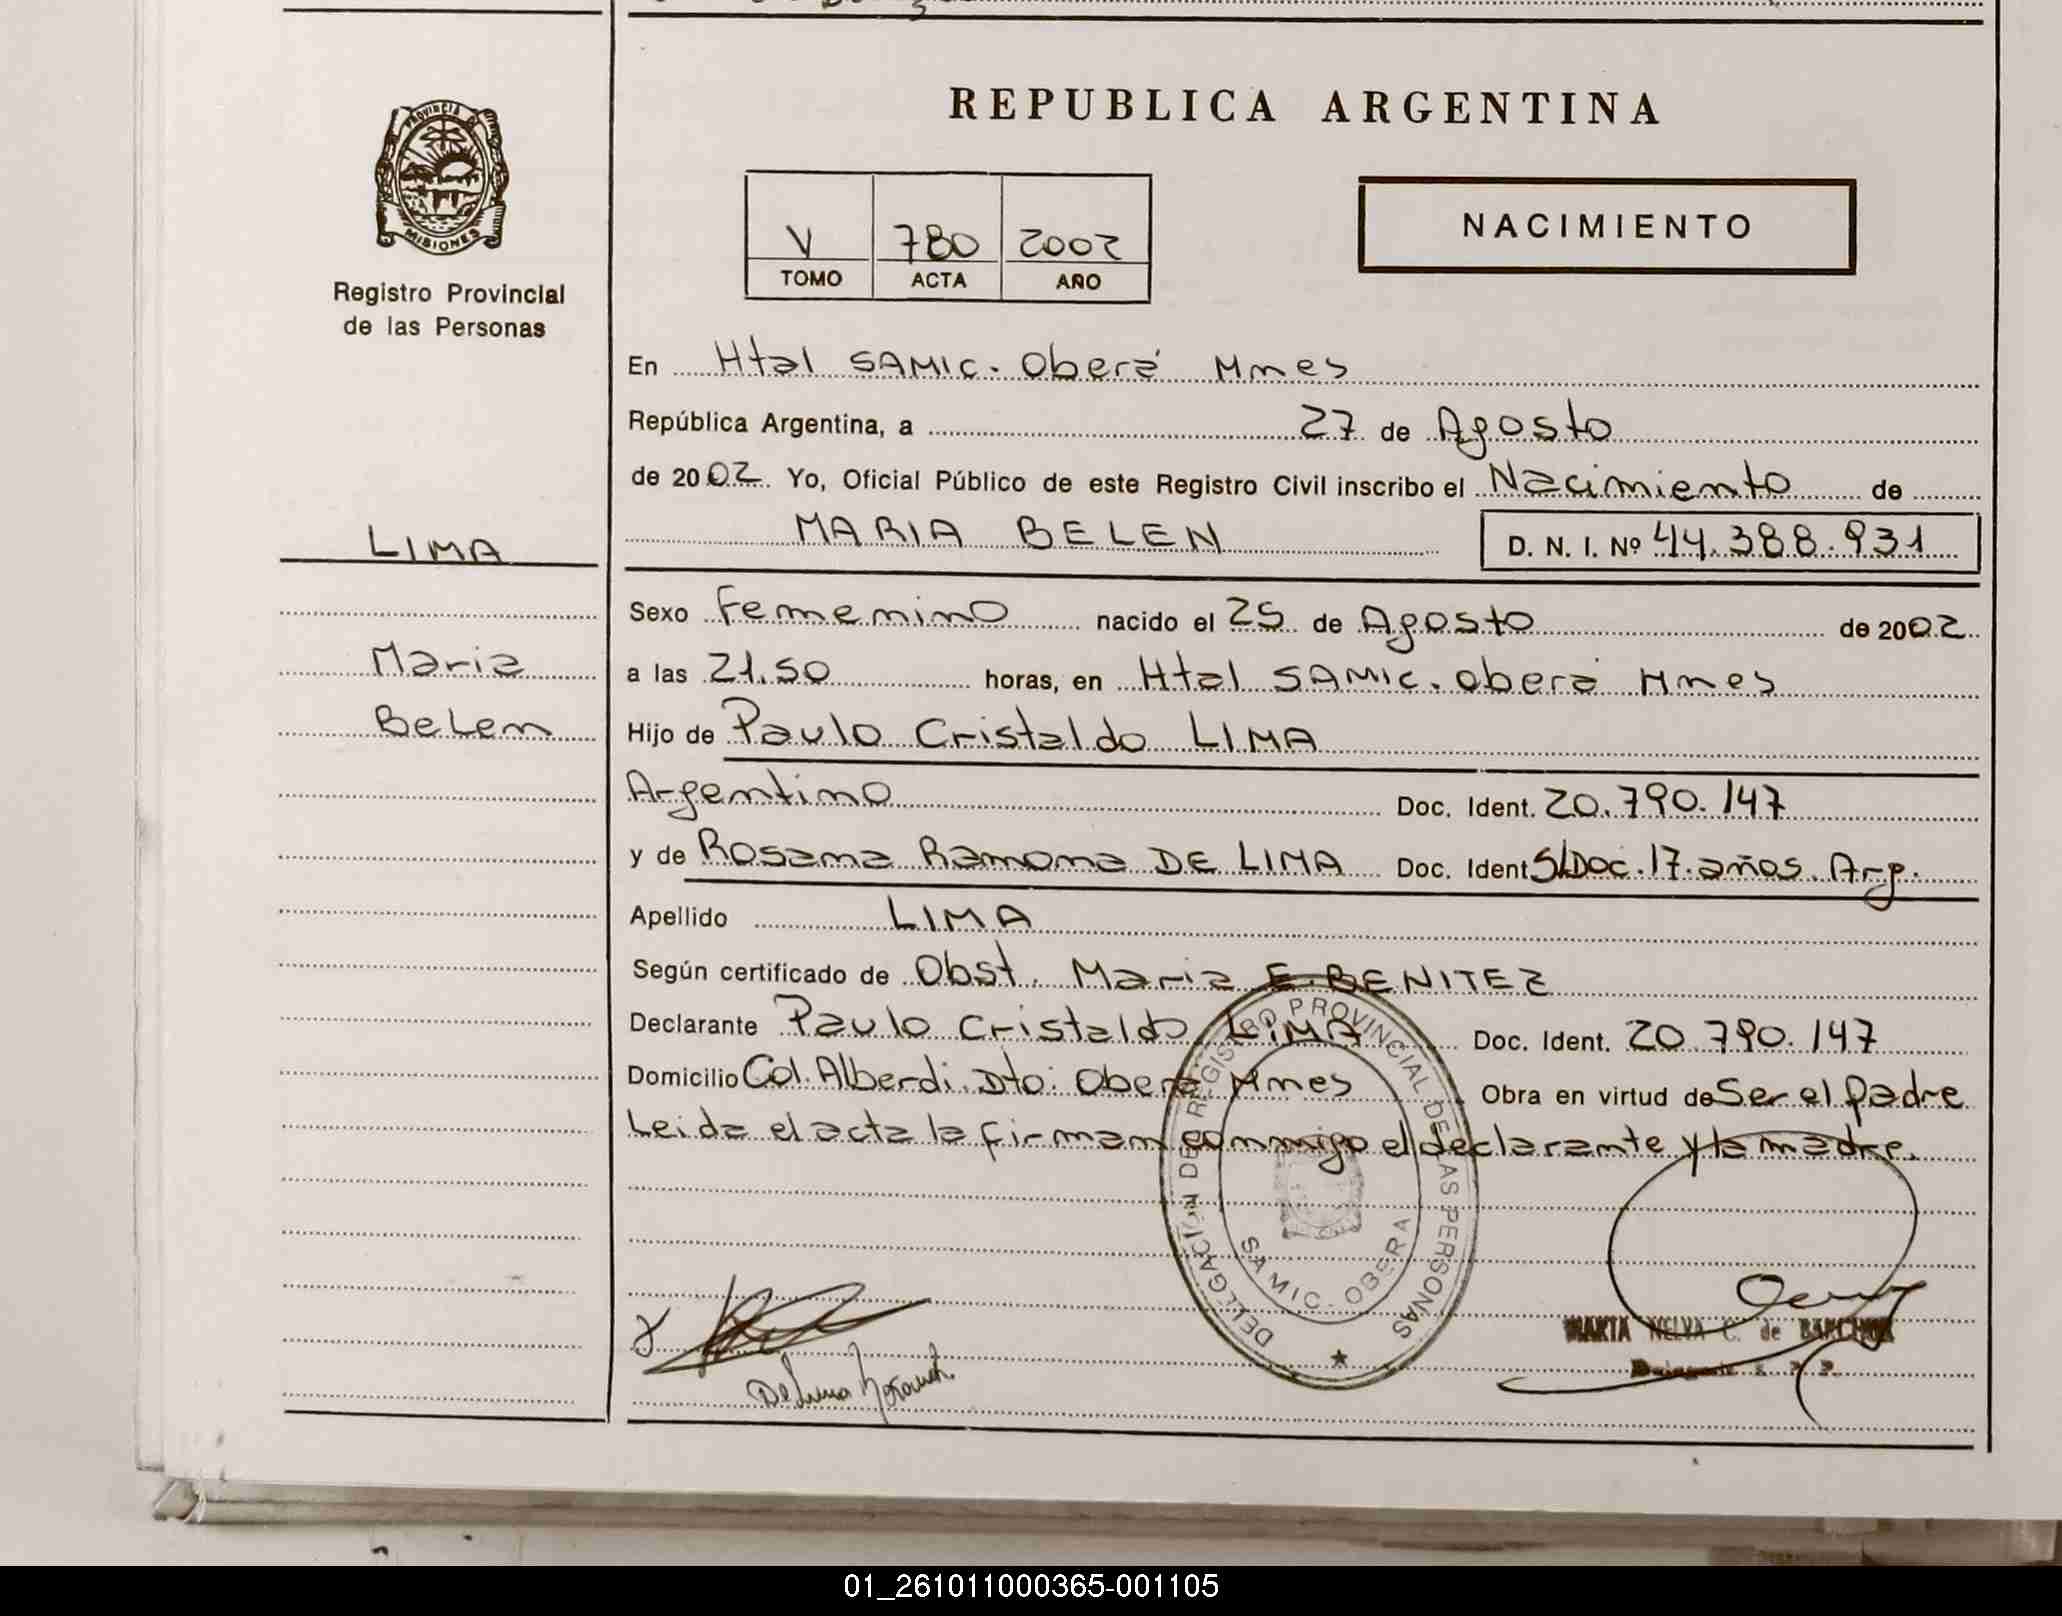 REPUBLICA ARGENTINA
PROVINCIA DE MISIONES
Registro Provincial
de las Personas
V 780 2002
TOMO ACTA AÑO
NACIMIENTO
En Htal SAMIC. Oberá Mnes
República Argentina, a 27 de Agosto
de 2002. Yo, Oficial Público de este Registro Civil inscribo el Nacimiento de
LIMA
MARIA BELEN D. N. I. Nº 44.388.931
Sexo Femenino nacido el 25 de Agosto de 2002
Maria
a las 21.50 horas, en Htal SAMIC. Oberá Mnes
Belen
Hijo de Paulo Cristaldo LIMA
Argentino Doc. Ident. 20.790.147
y de Rosana Ramona DE LIMA Doc. Ident S/Doc. 17 años. Arg.
Apellido LIMA
Según certificado de Obst. Maria E. BENITEZ
Declarante Paulo Cristaldo LIMA Doc. Ident. 20.790.147
Domicilio Col. Alberdi. Dto: Oberá Mnes Obra en virtud de Ser el padre
Leida el acta la firman conmigo el declarante y la madre.
DELEGACIÓN DEL REGISTRO PROVINCIAL DE LAS PERSONAS
SAMIC - OBERA
De Lima
MARTA NELVA C. de
01_261011000365-001105